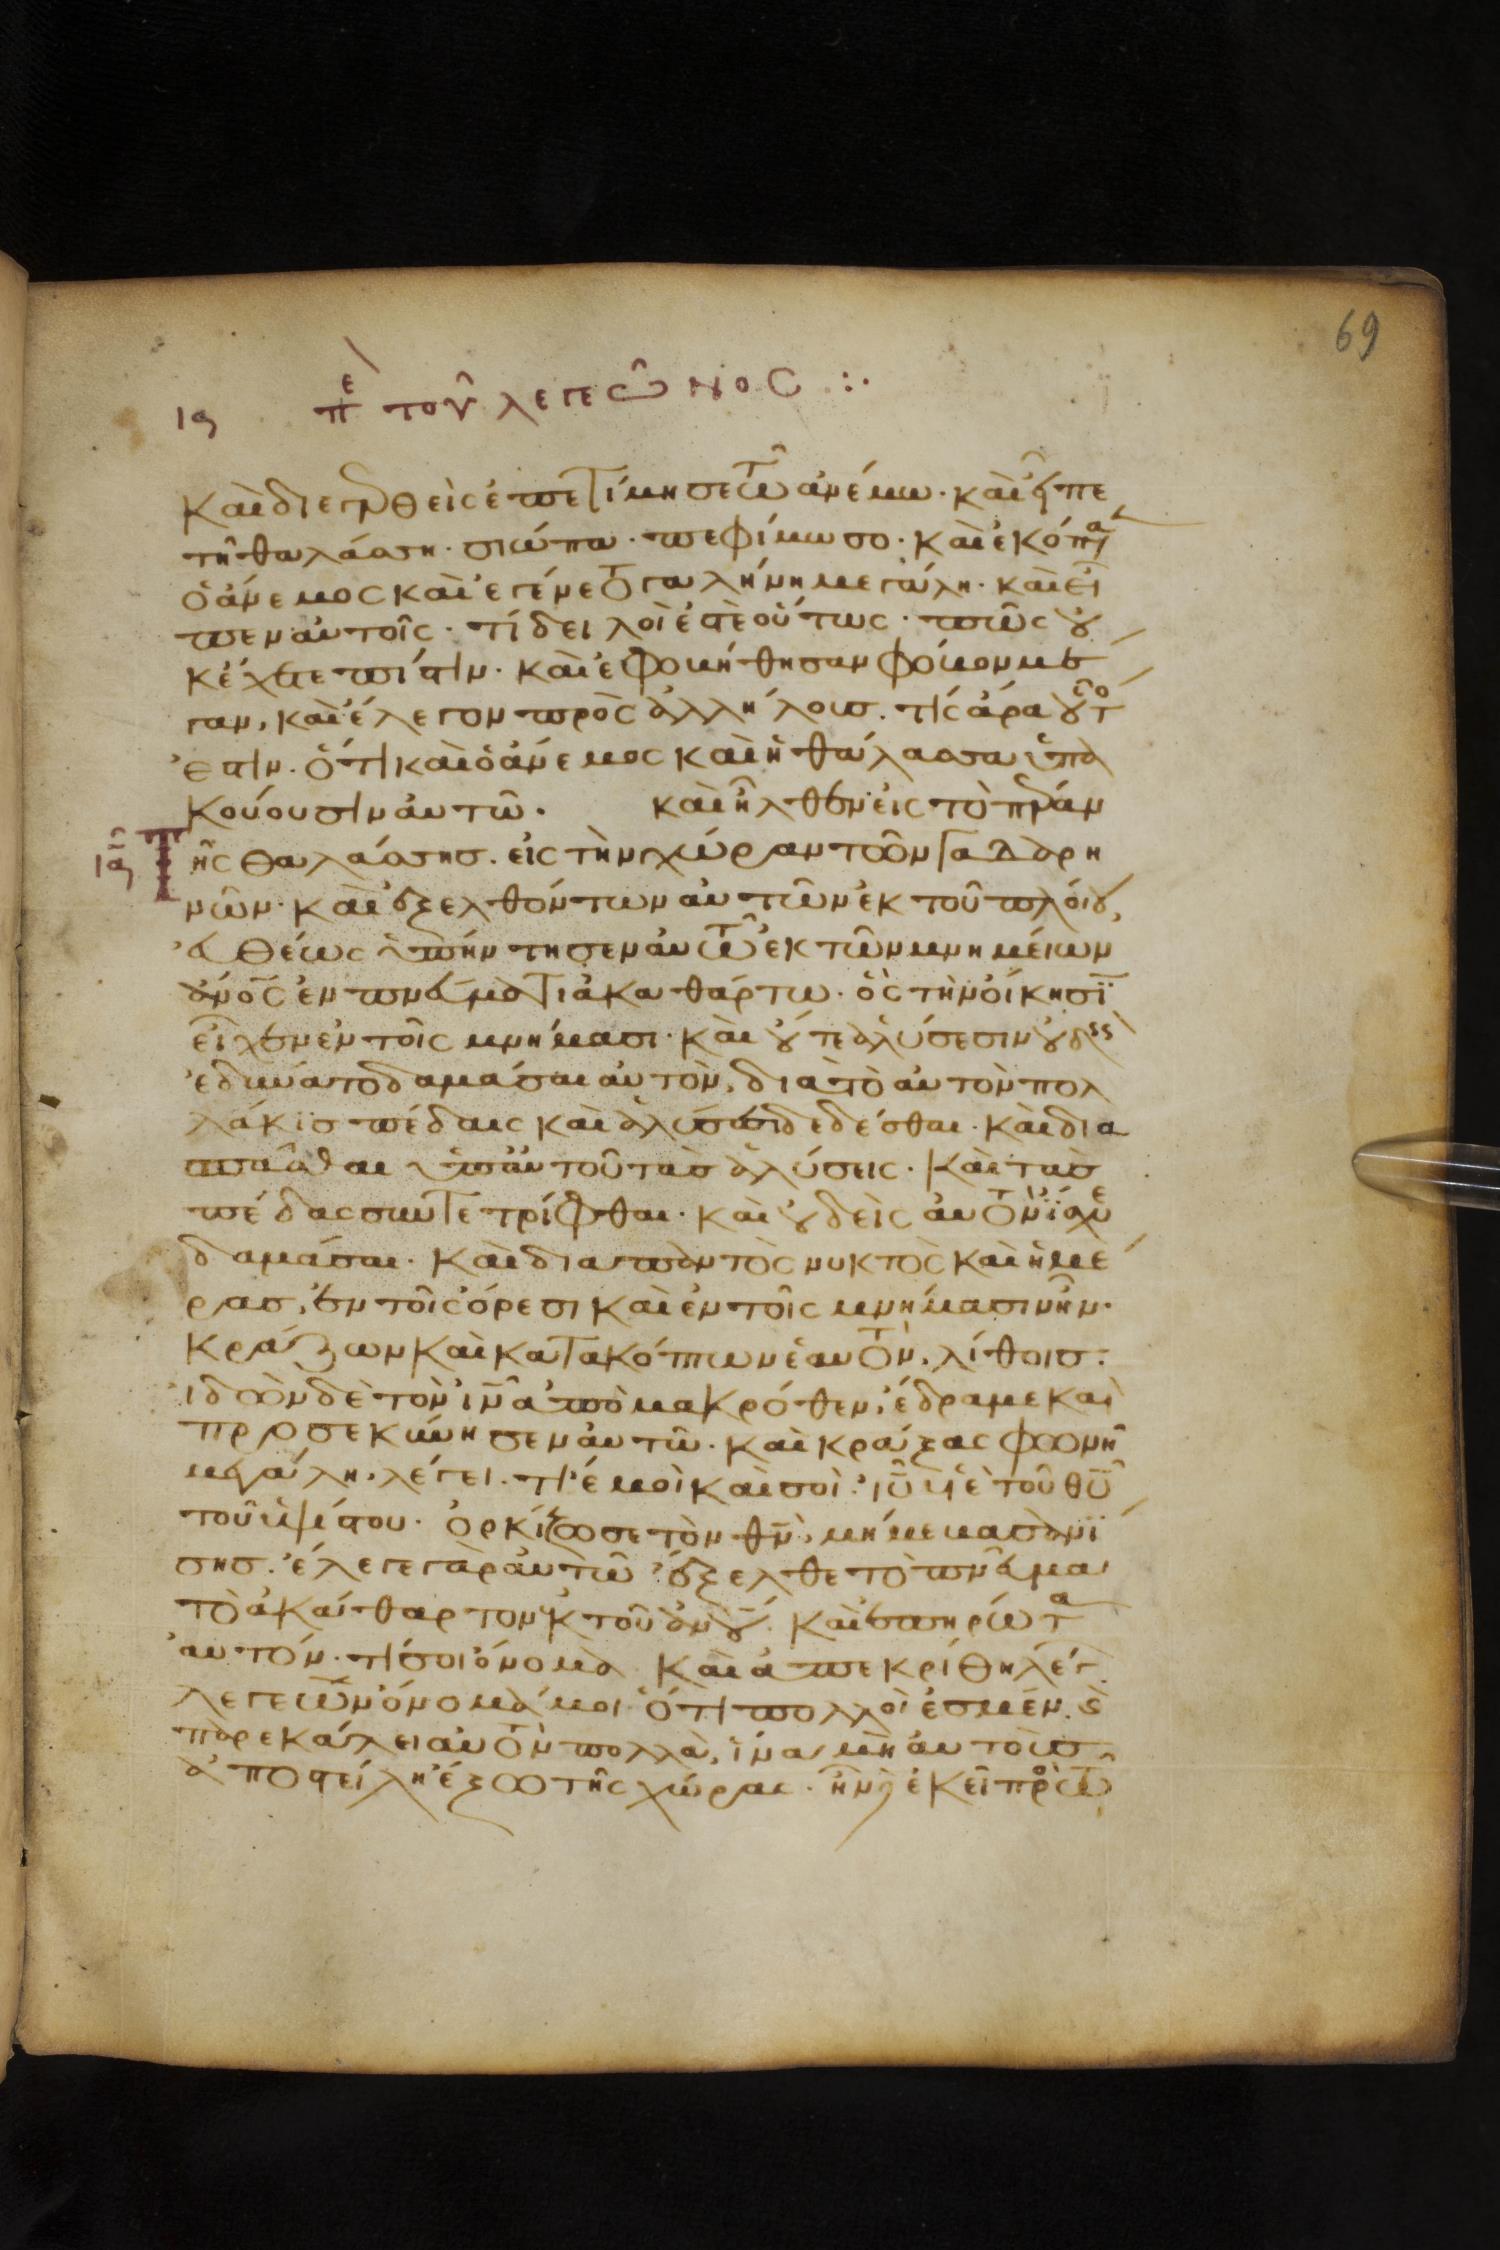 69
ια πε τοῦ λεγεῶνος ⁘
καὶ διεγερθεὶς ἐπετίμησε τῶ ἀνέμω· καὶ εἶπε
τῆ θαλάσση· σιώπα· πεφίμωσο· καὶ ἐκόπασ
ὁ ἄνεμος καὶ ἐγένετο γαλήνη μεγάλη· καὶ εἶ
πεν αὐτοῖς· τί δειλοί ἐστὲ οὕτως· πῶς οὐ
κ ἔχετε πίστιν· καὶ ἐφοβήθησαν φόβον μέ
γαν, καὶ ἔλεγον πρὸς ἀλλήλους· τίς ἄρα οὗτός
ἐστιν· ὅτι καὶ ὁ ἄνεμος καὶ ἡ θάλασσα ὑπα
κούουσιν αὐτῶ· καὶ ἦλθεν εἰς τὸ πέραν
Τῆς θαλάσσης· εἰς τὴν χώραν τῶν Γαδαρη
νῶν· καὶ ἐξελθόντων αὐτῶν ἐκ τοῦ πλοίου,
εὐθέως ὑπήντησεν αὐτῶ ἐκ τῶν μνημείων
ἄνος ἐν πνεύματι ἀκαθάρτω· ὃς τὴν οἴκησϊ
εἶχεν ἐν τοῖς μνήμασι· καὶ οὔτε ἁλύσεσιν οὐδεὶς
ἐδύνατο δαμάσαι αὐτὸν, διὰ τὸ αὐτὸν πολ
λάκις πέδαις καὶ ἁλύσεσι δεδέσθαι· καὶ δια
σπᾶσθαι ὑπ αὐτοῦ τὰς ἁλύσεις· καὶ τὰς
πέδας συντετρίφθαι· καὶ οὐδεὶς αὐτὸν ἴσχυε
δαμάσαι· καὶ διαπαντὸς νυκτὸς καὶ ἡμέ
ρας, ἐν τοῖς ὄρεσι καὶ ἐν τοῖς μνήμασιν ἦν·
κράζων καὶ κατακόπτων ἑαυτὸν, λίθοις·
ἰδὼν δὲ τὸν ιν ἀπὸ μακρόθεν, ἔδραμε καὶ
προσεκύνησεν αὐτῶ· καὶ κράξας φωνῆ
μεγάλη, λέγει· τί ἐμοὶ καὶ σοὶ ιυ υἱὲ τοῦ θυ
τοῦ ὑψίστου· ὁρκίζω σε τὸν θν, μή με βασανϊ
σης· ἔλεγε γὰρ αὐτῶ ἔξελθε τὸ πνεῦμα
τὸ ἀκάθαρτον ἐκ τοῦ ανου· καὶ ἐπηρώτα
αὐτόν· τί σοι ὄνομα· καὶ ἀπεκρίθη λέγ
λεγεῶν ὄνομά μοι· ὅτι πολλοί ἐσμέν· καὶ
παρεκάλει αὐτὸν πολλὰ, ἵνα μὴ αὐτοὺς
ἀποστείλη ἔξω τῆς χώρας· ἦν δὲ ἐκεῖ πρὸς τῶ
ια